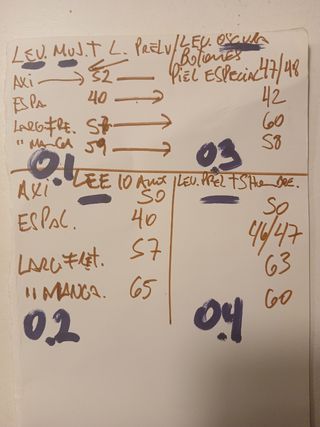 LEV. MUJ. + L. PRELV/LEV. OSCURA
BOTONES
PIEL ESPECIAL
AXI → 52 — 47/48
ESPA 40 → 42
LARG F RE. 57 → 60
" MANGA 59 → 58
0.1
0.3
LEE 10 AM
AXI 50
ESPAL. 40
LARG F RET. 57
" MANGA. 65
0.2
LEV. PREL +
50
46/47
63
60
0.4